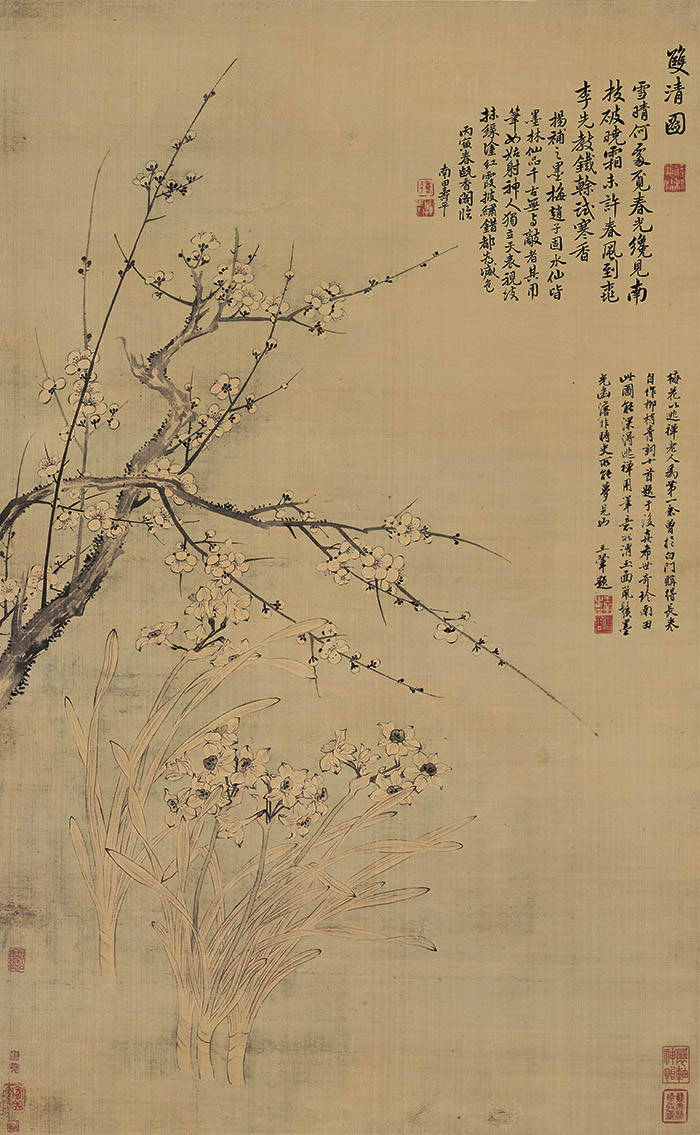 雙清圖
雪晴何處覓春光纔見南
枝破曉霜未許春風到桃
李先教鐵榦試寒香
楊補之墨梅趙子固水仙皆
墨林仙品千古無與敵者其用
筆如姑射神人獨立天表視彼
抹綠塗紅霞披繡錯都為減色
丙寅春甌香閣臨
南田壽平
梅花以逃禪老人為第一余曾於白門購得長卷
自作柳梢青詞十首題于後真希世奇珍南田
此圖能深得逃禪用筆意所謂玉面風鬟墨
光幽瀋非時史所能夢見也 王翬題